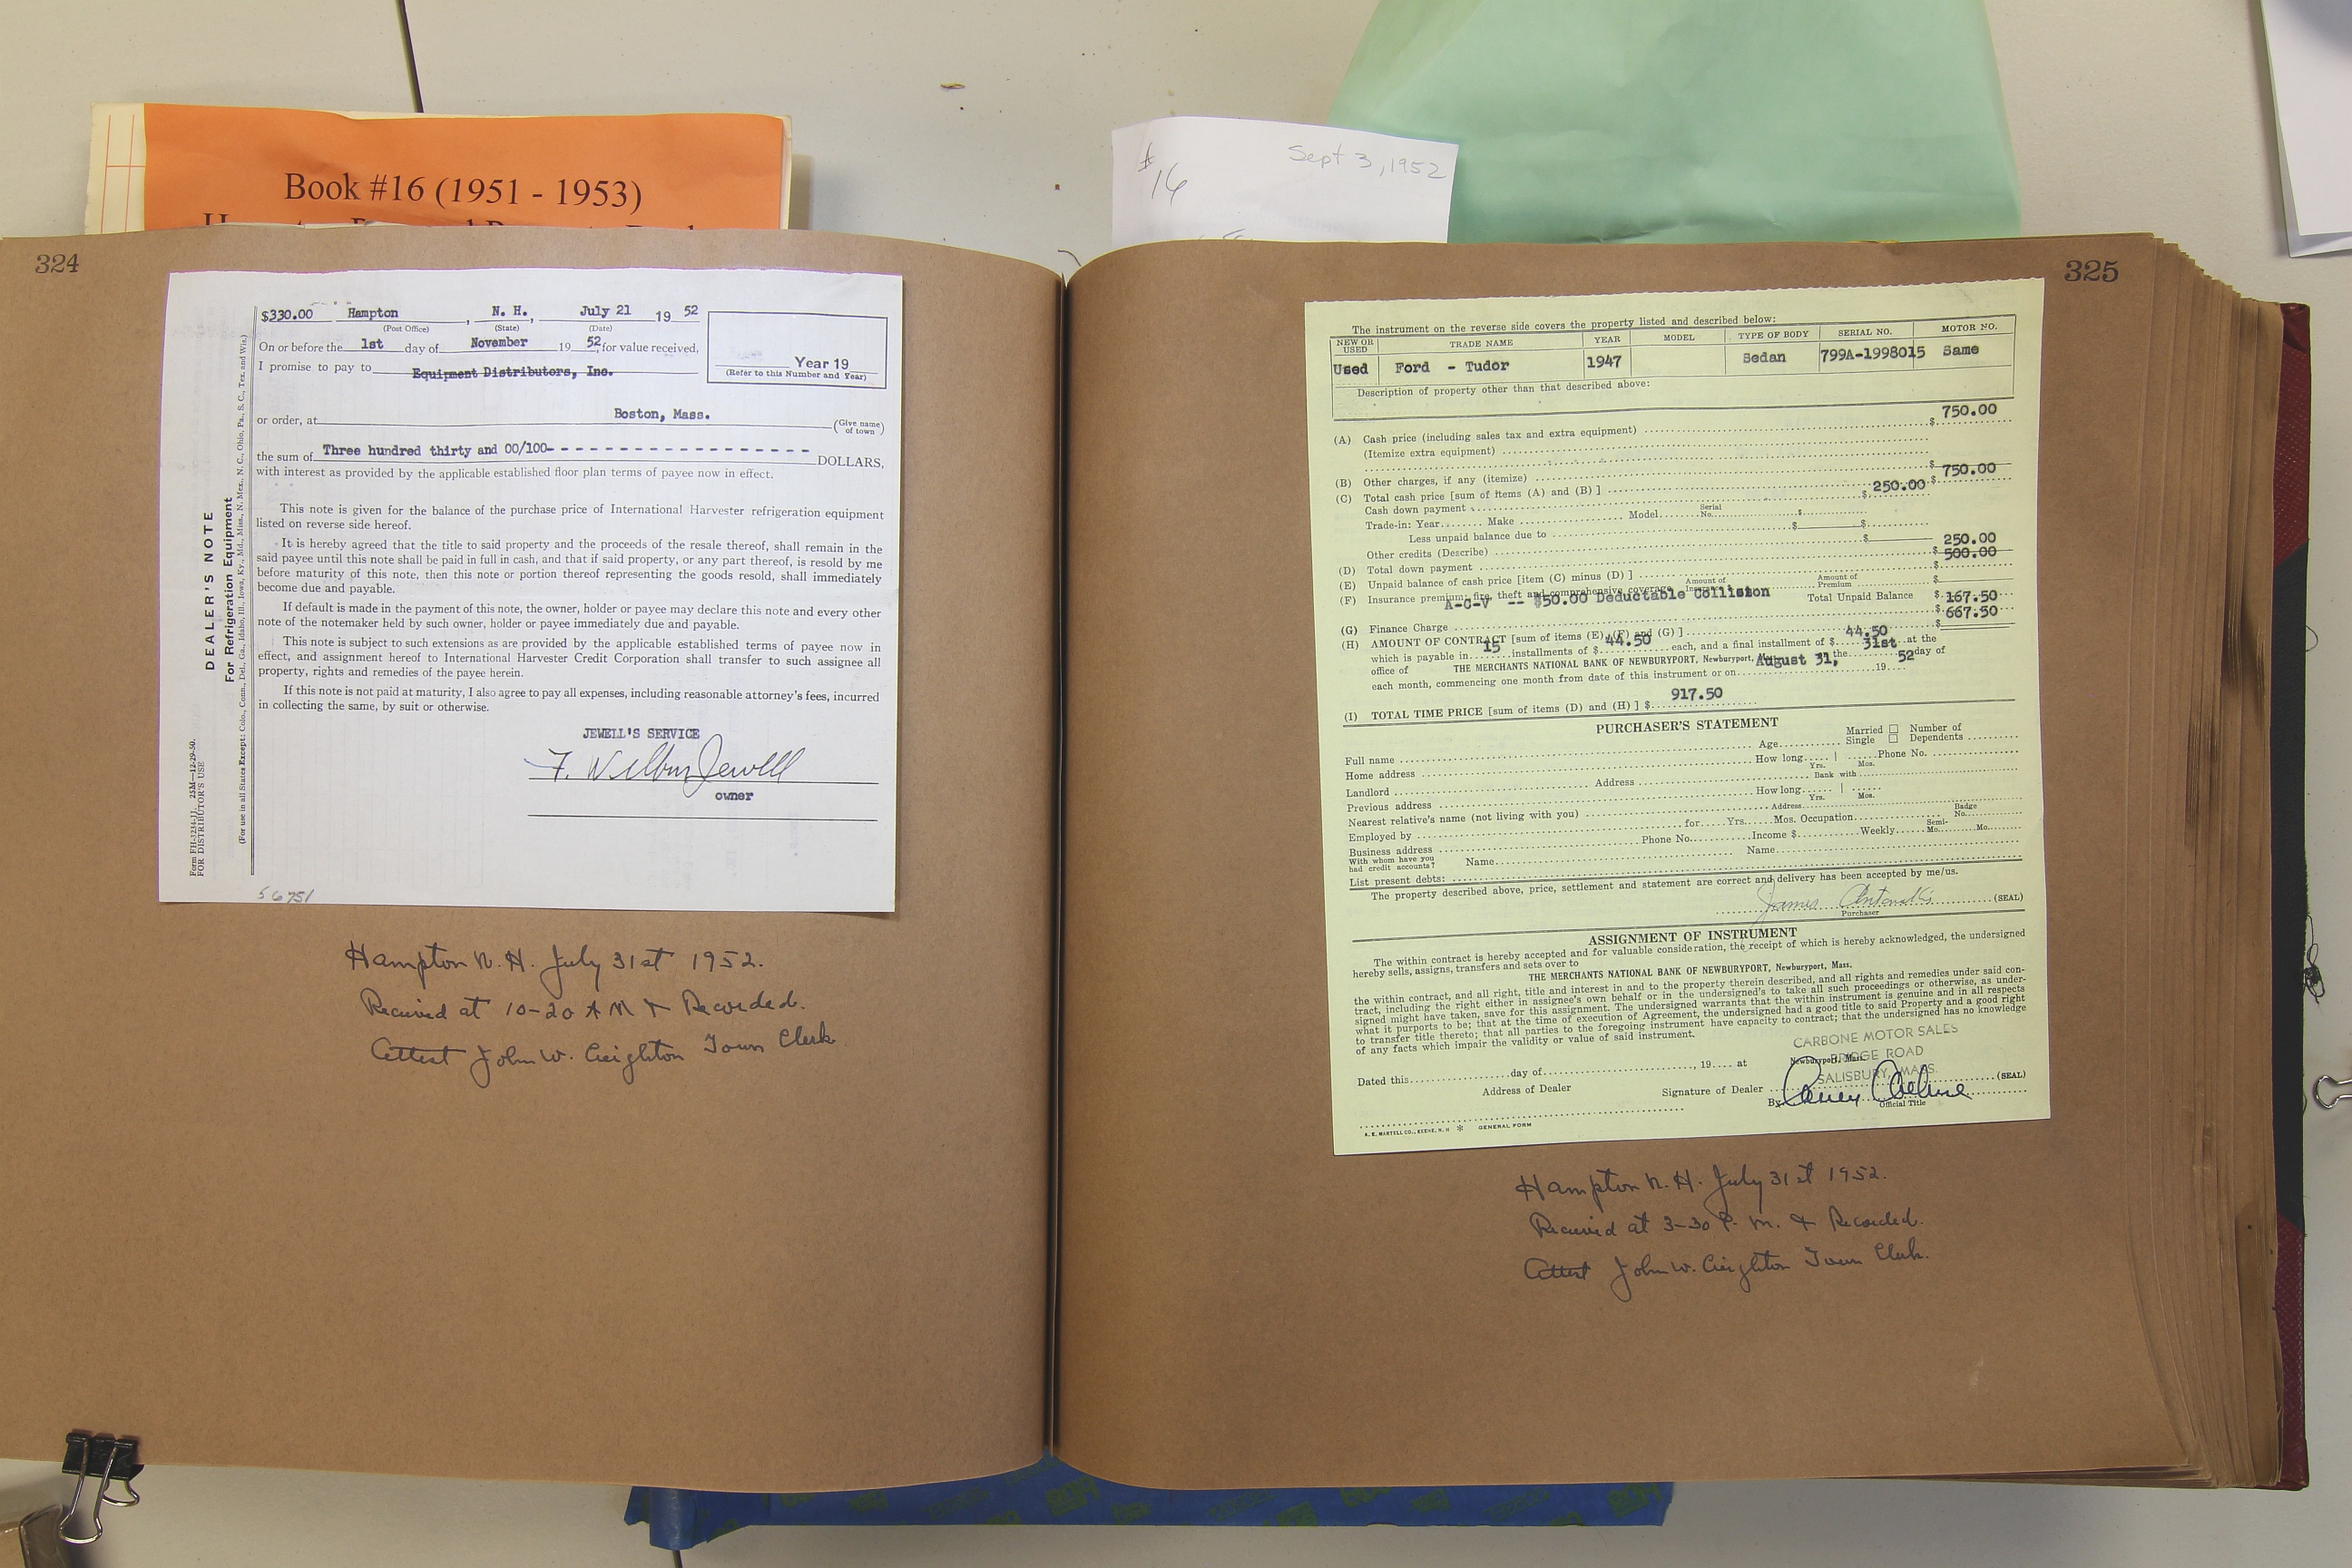 Book #16 (1951 - 1953)
# 16
Sept 3, 1952
324
$330.00 Hampton, N. H., July 21 19 52
(Post Office) (State) (Date)
On or before the 1st day of November 19 52, for value received,
I promise to pay to Equipment Distributors, Inc.
Year 19
(Refer to this Number and Year)
or order, at Boston, Mass. (Give name of town)
the sum of Three hundred thirty and 00/100- - - - - - - - - - - - - - - - - - DOLLARS,
with interest as provided by the applicable established floor plan terms of payee now in effect.
This note is given for the balance of the purchase price of International Harvester refrigeration equipment
listed on reverse side hereof.
It is hereby agreed that the title to said property and the proceeds of the resale thereof, shall remain in the
said payee until this note shall be paid in full in cash, and that if said property, or any part thereof, is resold by me
before maturity of this note, then this note or portion thereof representing the goods resold, shall immediately
become due and payable.
If default is made in the payment of this note, the owner, holder or payee may declare this note and every other
note of the notemaker held by such owner, holder or payee immediately due and payable.
This note is subject to such extensions as are provided by the applicable established terms of payee now in
effect, and assignment hereof to International Harvester Credit Corporation shall transfer to such assignee all
property, rights and remedies of the payee herein.
If this note is not paid at maturity, I also agree to pay all expenses, including reasonable attorney's fees, incurred
in collecting the same, by suit or otherwise.
JEWELL'S SERVICE
F. Wilbur Jewell
owner
DEALER'S NOTE
For Refrigeration Equipment
(For use in all States Except: Colo., Conn., Del., Ga., Idaho, Ill., Iowa, Ky., Md., Miss., N. Mex., N. C., Ohio, Pa., S. C., Tex. and Wis.)
Form FH-3234-11. 25M—12-29-50.
FOR DISTRIBUTOR'S USE
56751
Hampton N. H. July 31st 1952.
Received at 10-20 A M & Recorded.
Attest John W. Creighton Town Clerk
325
The instrument on the reverse side covers the property listed and described below:
NEW OR USED TRADE NAME YEAR MODEL TYPE OF BODY SERIAL NO. MOTOR NO.
Used Ford - Tudor 1947 Sedan 799A-1998015 Same
Description of property other than that described above:
(A) Cash price (including sales tax and extra equipment) $ 750.00
(Itemize extra equipment)
(B) Other charges, if any (itemize) $
(C) Total cash price [sum of items (A) and (B) ] $ 750.00
Cash down payment $ 250.00
Trade-in: Year Make Model Serial No. $
Less unpaid balance due to $ $
Other credits (Describe) $
(D) Total down payment $ 250.00
(E) Unpaid balance of cash price [item (C) minus (D) ] $ 500.00
(F) Insurance premium; fire, theft and comprehensive coverage Amount of Insurance Amount of Premium $
A-C-V -- $50.00 Deductable Collision Total Unpaid Balance $
(G) Finance Charge $ 167.50
(H) AMOUNT OF CONTRACT [sum of items (E), (F) and (G) ] $ 667.50
which is payable in 15 installments of $ 44.50 each, and a final installment of $ 44.50 at the
office of THE MERCHANTS NATIONAL BANK OF NEWBURYPORT, Newburyport, Mass. on the 31st day of
each month, commencing one month from date of this instrument or on August 31, 19 52
(I) TOTAL TIME PRICE [sum of items (D) and (H) ] $ 917.50
PURCHASER'S STATEMENT
Full name Age Married Single Number of Dependents
Home address How long Yrs. Mos. Phone No.
Landlord Address Bank with
Previous address How long Yrs. Mos.
Nearest relative's name (not living with you) Address
Employed by for Yrs. Mos. Occupation Badge No.
Business address Phone No. Income $ Weekly Semi-Mo. Mo.
With whom have you had credit accounts? Name Name
List present debts:
The property described above, price, settlement and statement are correct and delivery has been accepted by me/us.
James (SEAL)
Purchaser
ASSIGNMENT OF INSTRUMENT
The within contract is hereby accepted and for valuable consideration, the receipt of which is hereby acknowledged, the undersigned
hereby sells, assigns, transfers and sets over to
THE MERCHANTS NATIONAL BANK OF NEWBURYPORT, Newburyport, Mass.
the within contract, and all right, title and interest in and to the property therein described, and all rights and remedies under said con-
tract, including the right either in assignee's own behalf or in the undersigned's to take all such proceedings or otherwise, as under-
signed might have taken, save for this assignment. The undersigned warrants that the within instrument is genuine and in all respects
what it purports to be; that at the time of execution of Agreement, the undersigned had a good title to said Property and a good right
to transfer title thereto; that all parties to the foregoing instrument have capacity to contract; that the undersigned has no knowledge
of any facts which impair the validity or value of said instrument.
CARBONE MOTOR SALES
BRIDGE ROAD
SALISBURY, MASS.
Newburyport, Mass.
Dated this day of , 19 at
Address of Dealer Signature of Dealer (SEAL)
By Official Title
A. E. MARTELL CO., KEENE, N. H * GENERAL FORM
Hampton N. H. July 31st 1952.
Received at 3-30 P. M. & Recorded.
Attest John W. Creighton Town Clerk.